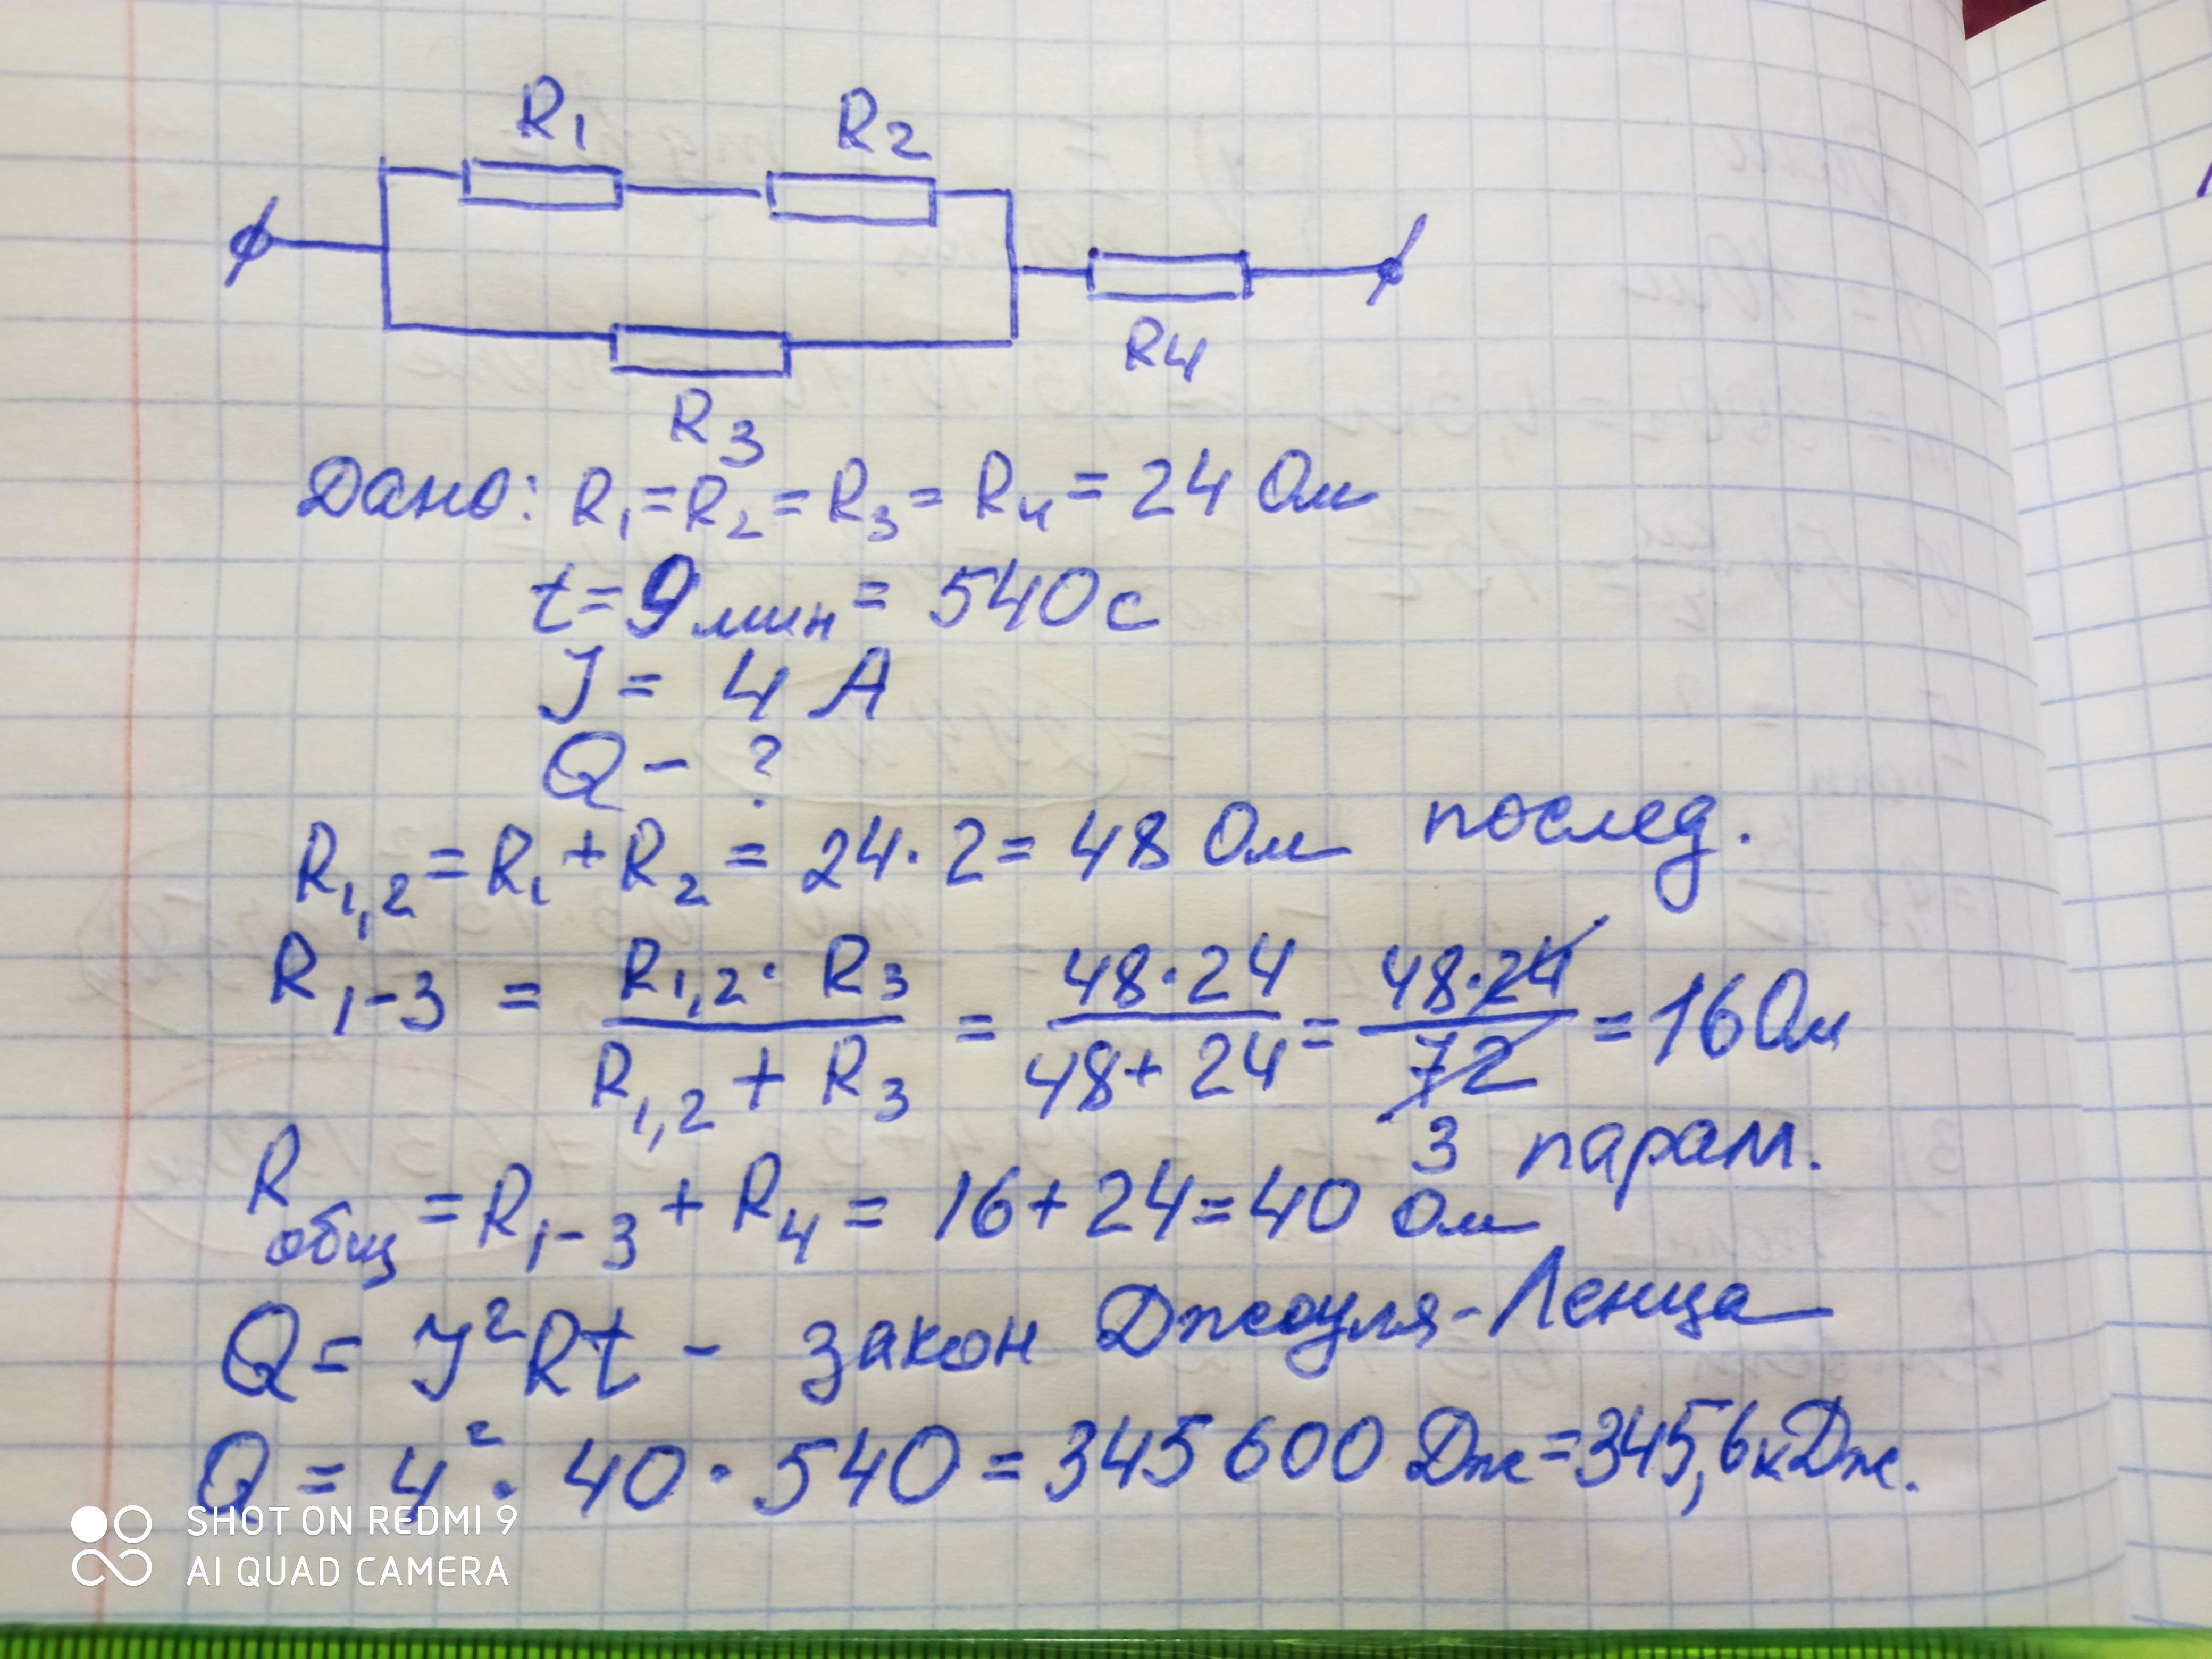 R₁ R₂
R₃ R₄
Дано: R₁ = R₂ = R₃ = R₄ = 24 Ом
t = 9 мин = 540 с
J = 4 А
Q - ?
R₁,₂ = R₁ + R₂ = 24 · 2 = 48 Ом послед.
R₁₋₃ = (R₁,₂ · R₃)/(R₁,₂ + R₃) = (48 · 24)/(48 + 24) = (48 · 24)/72 = 16 Ом
3 парал.
Rобщ = R₁₋₃ + R₄ = 16 + 24 = 40 Ом
Q = J²Rt - закон Джоуля-Ленца
Q = 4² · 40 · 540 = 345 600 Дж = 345,6 кДж.
SHOT ON REDMI 9
AI QUAD CAMERA